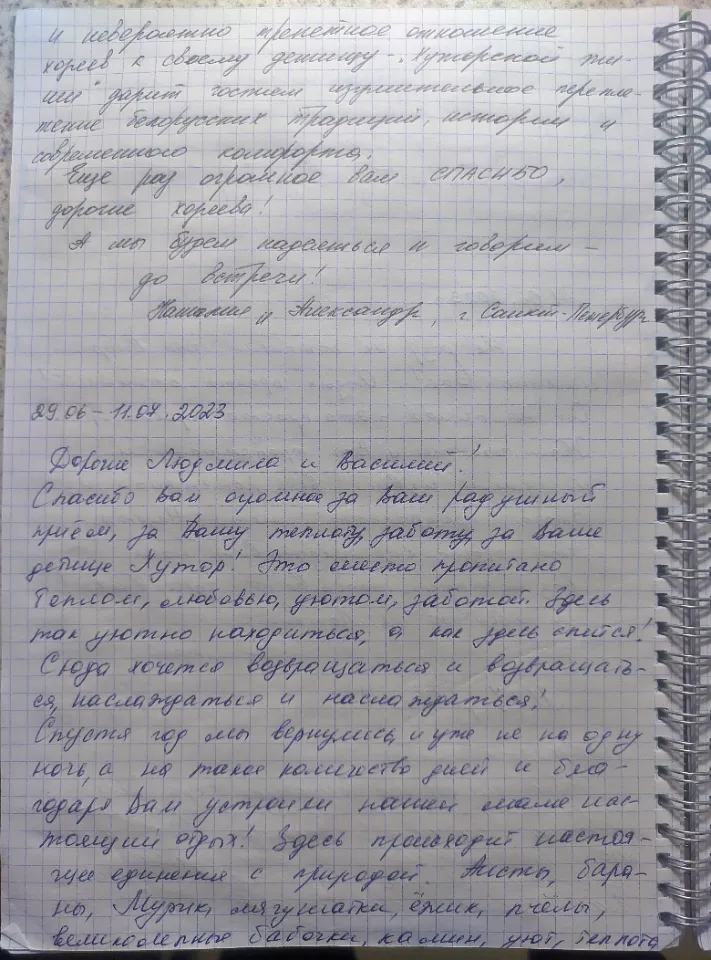 и невероятно трепетное отношение
хозяев к своему детищу - "Хуторской ти-
ши" дарит гостям изумительное перепле-
тение белорусских традиций, истории и
современного комфорта.
Еще раз огромное Вам СПАСИБО,
дорогие хозяева!
А мы будем надеяться и говорим -
до встречи!
Наталия и Александр, г. Санкт-Петербург
29.06 - 11.07.2023
Дорогие Людмила и Василий!
Спасибо Вам огромное за Ваш радушный
приём, за Вашу теплоту, заботу, за Ваше
детище Хутор! Это место пропитано
теплом, любовью, уютом, заботой. Здесь
так уютно находиться, а как здесь спится!
Сюда хочется возвращаться и возвращать-
ся, наслаждаться и наслаждаться!
Спустя год мы вернулись, и уже не на одну
ночь, а на такое количество дней и бла-
годаря Вам устроили нашей маме нас-
тоящий отдых! Здесь происходит настоя-
щее единение с природой. Аисты, бара-
ны, Мурик, лягушатки, ёжик, пчёлы,
великолепные бабочки, камин, уют, теплота